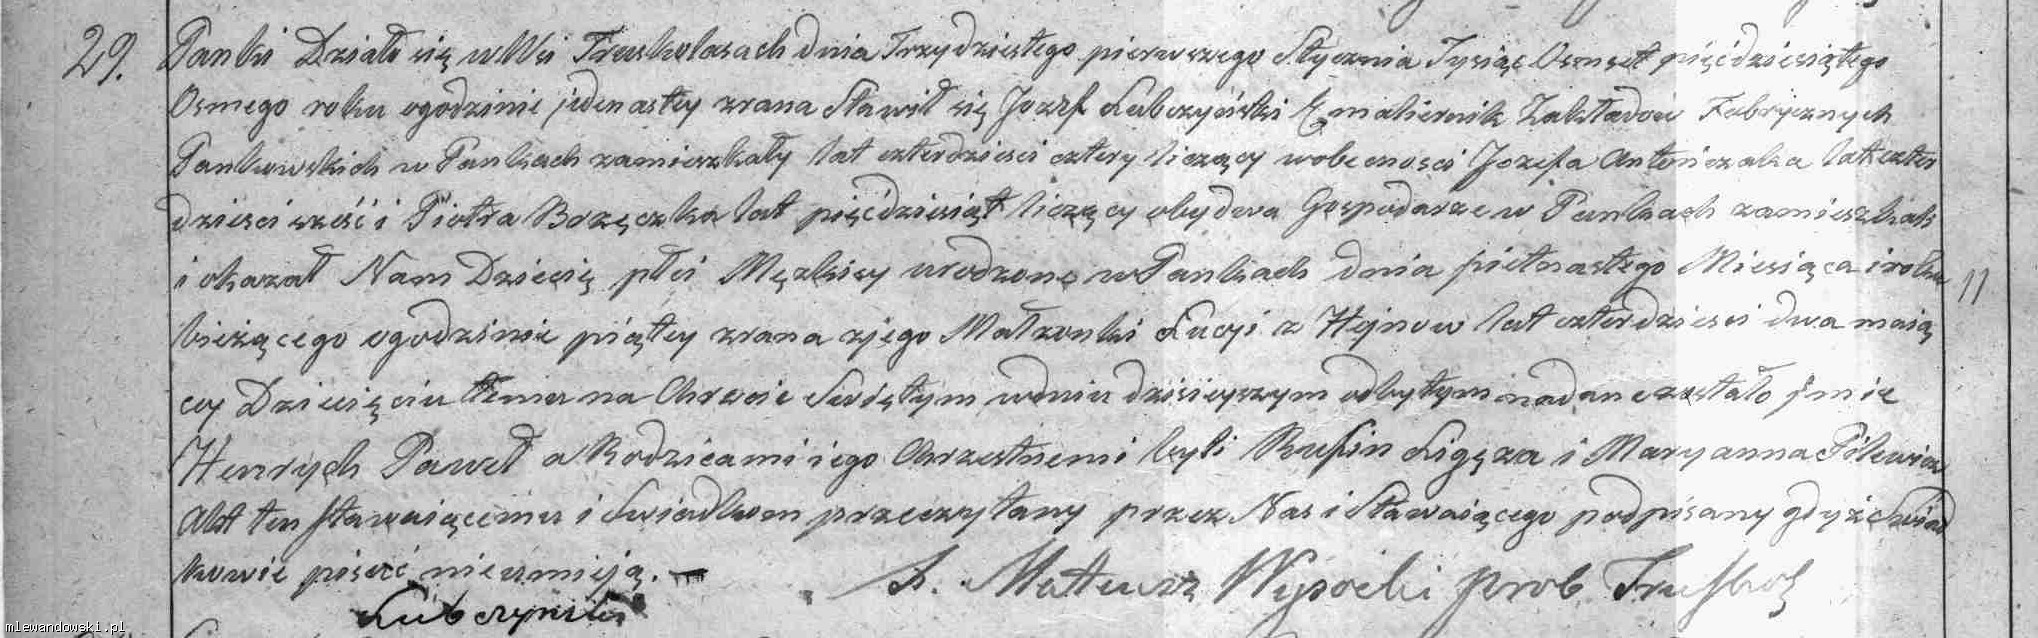 29. Panki Działo się w Wsi Truskolasach dnia Trzydziestego pierwszego Stycznia Tysiąc Osmset pięćdziesiątego
Osmego roku ogodzinie jedenastey zrana Stawił się Jozef Lubczyński Emaliernik Zakładow Fabrycznych
Pankowskich w Pankach zamieszkały lat czterdziesci cztery liczący wobecnosci Jozefa Antoniczaka lat czter
dziesci sześć i Piotra Brzęczka lat pięćdziesiąt liczący obydwa Gospodarze w Pankach zamieszkali
i okazał Nam Dziecię płci Męzkiey urodzone w Pankach dnia pietnastego Miesiąca i roku
bieżącego ogodzinie piątey zrana zjego Małzonki Lucyi z Hejnow lat czterdziesci dwa maią
cy Dziecięciu temu na Chrzcie Swiętym wdniu dzisieyszym odbytym nadane zostało Jmie
Henrych Paweł a Rodzicami iego Chrzestnemi byli Rufin Ligęza i Maryanna Pilewicz
Akt ten stawaiącemu i Swiadkom przeczytany przez Nas i Stawaiącego podpisany gdyż Swiad
kowie pisać nieumieją. —
11
X. Mateusz Wysocki prob Truskol
Lubczynski
mlewandowski.pl